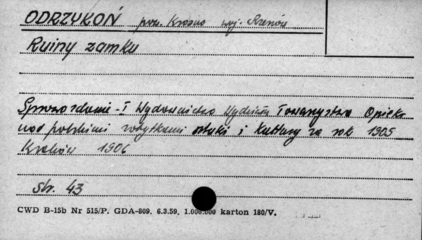 ODRZYKOŃ pow. Krosno woj. Rzeszów
Ruiny zamku
Sprawozdanie I Wydawnictwa Wydziału Towarzystwa Opieki
nad polskimi zabytkami sztuki i kultury za rok 1905
Kraków 1906
Str. 43
CWD B-15b Nr 515/P. GDA-809. 6.3.59, 1.000.000 karton 180/V.